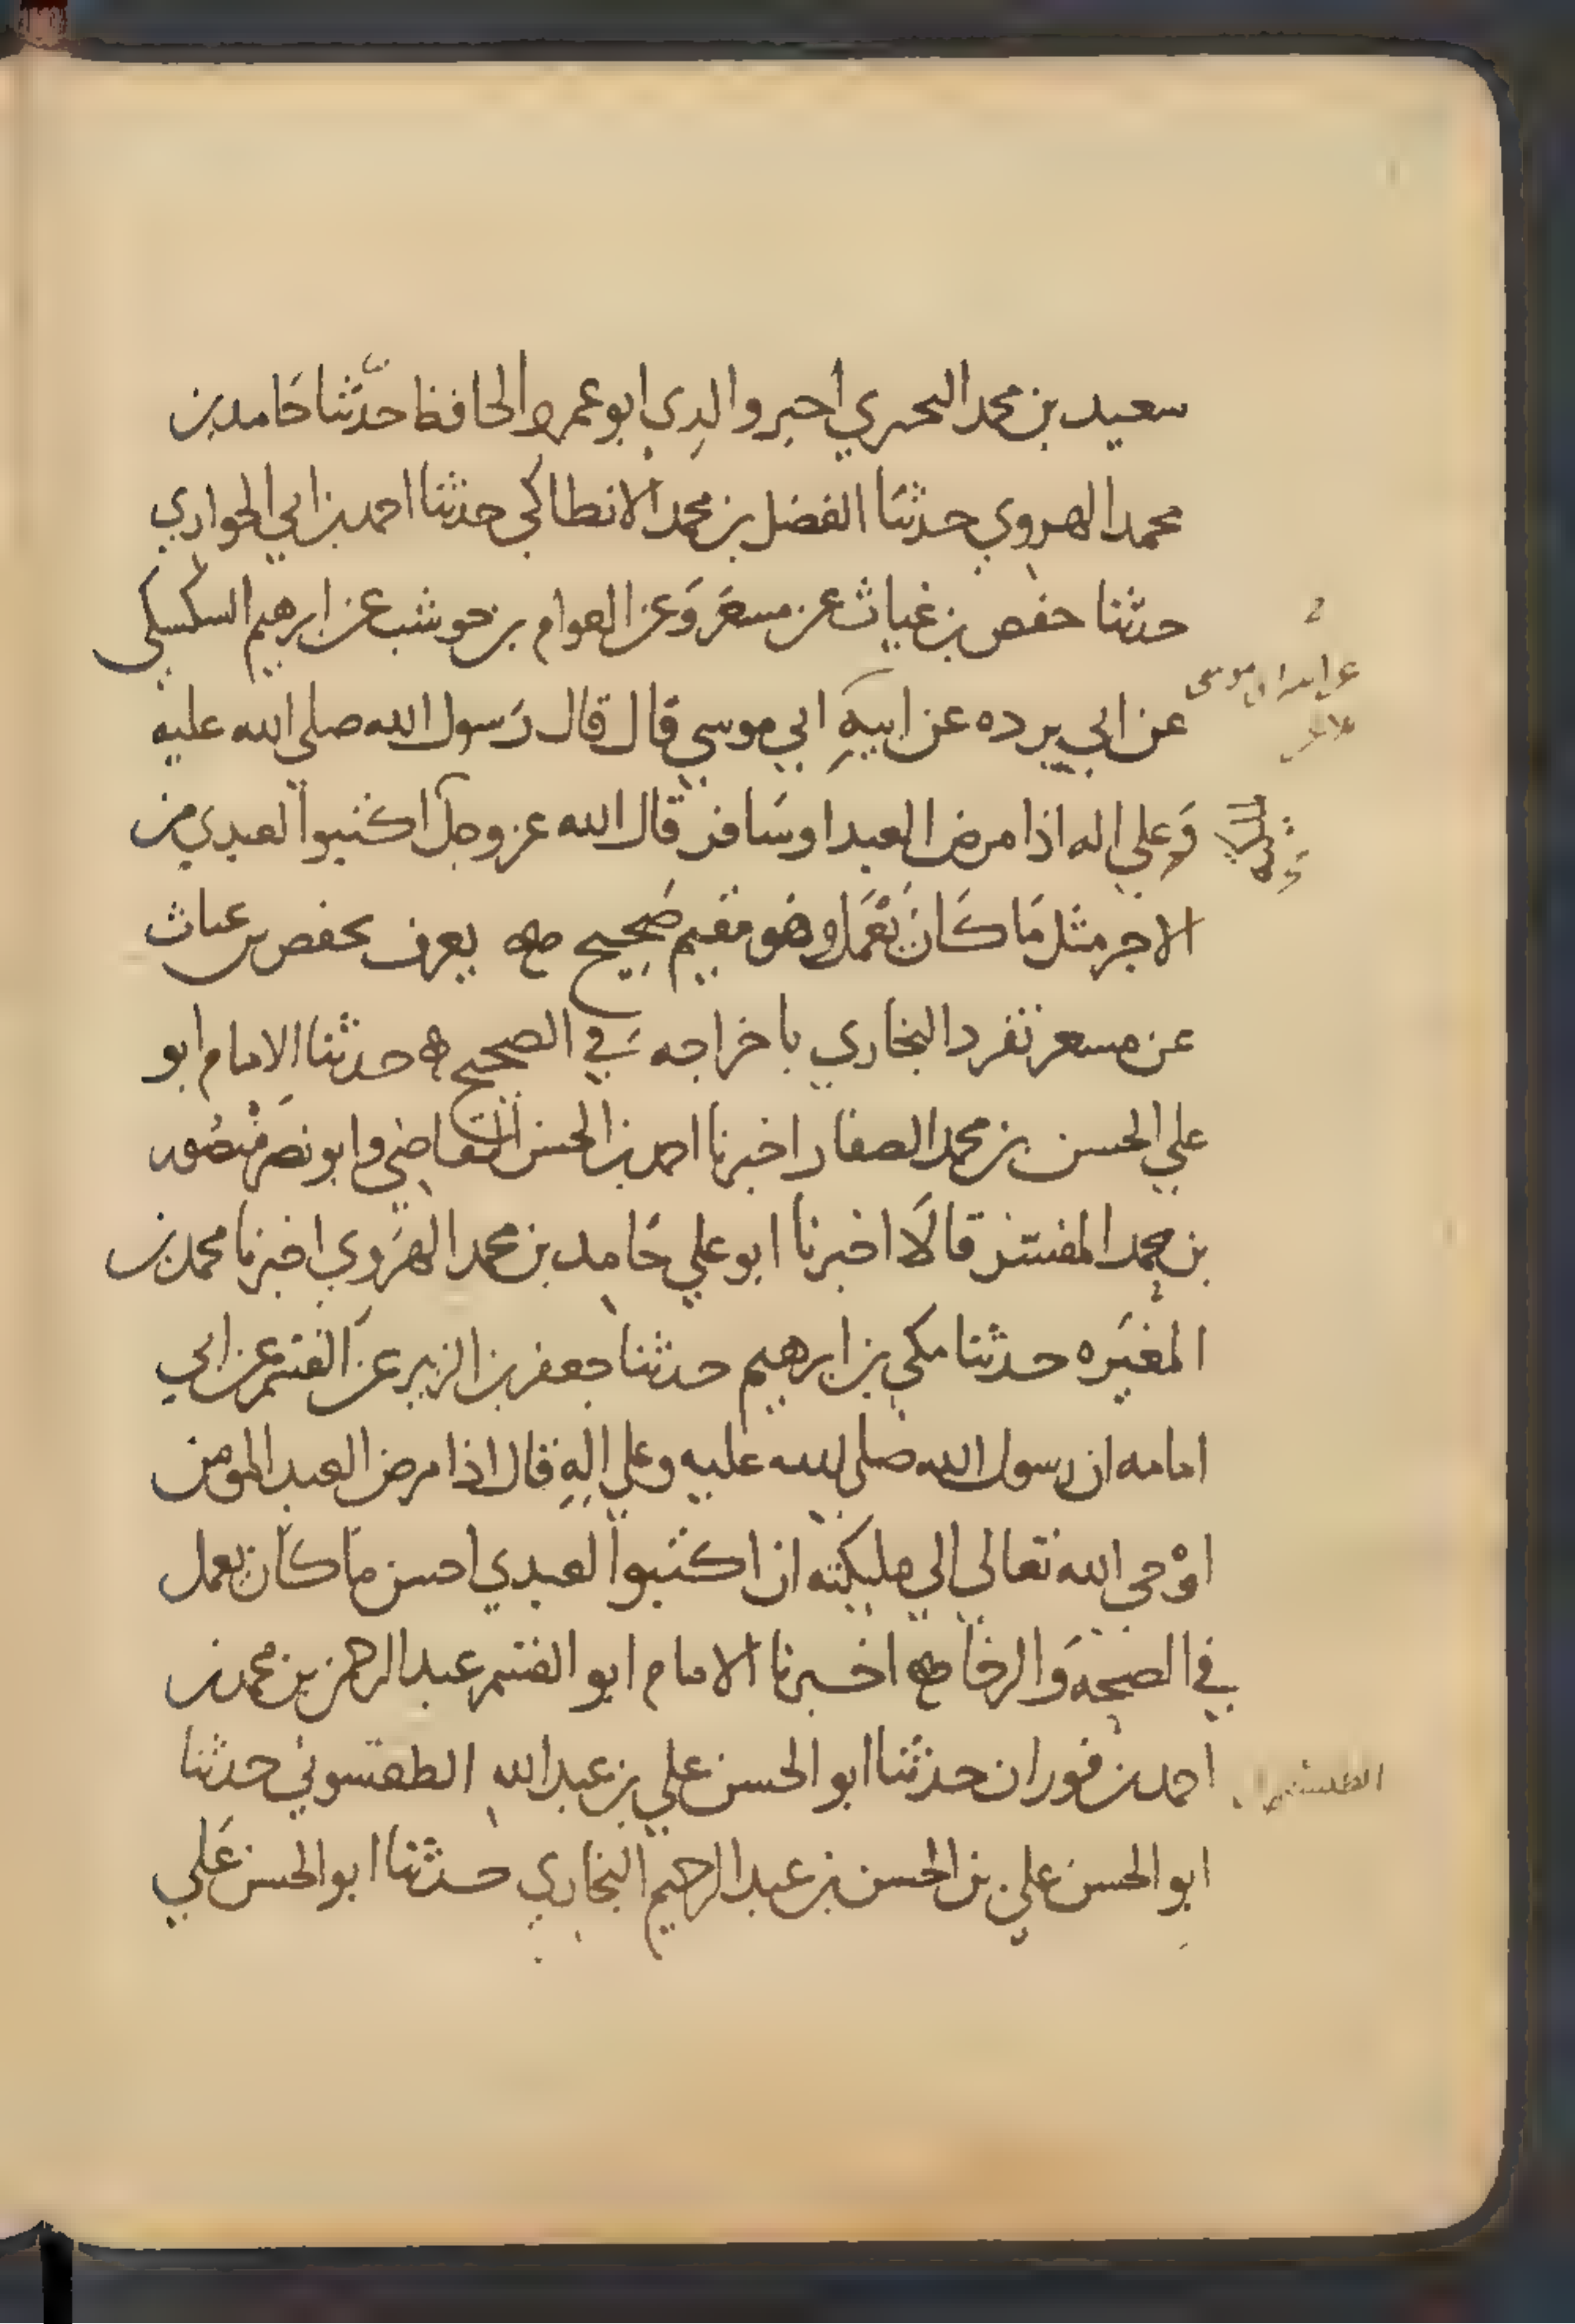 سعيد بن محمد البحيري اخبر والدي ابو عمرو الحافظ حدثنا حَامد بن
محمد الهروي حدثنا الفضل بن محمد الانطاكي حدثنا احمد بن ابي الحواري
حدثنا حفص بن غياث عن مسعر وَعن العوام بن حوشب عن ابرهيم السكسكي
عن ابي برده عن ابيهِ ابي موسي قال قال رَسول الله صلي الله عليه
وَعلي اله اذا مرض العبد او سَافر قال الله عز وجل اكتبوا لعبدي من
الاجر مثل مَا كَانَ يَعْمَل وهو مقيم صَحِيح يعرف بحفص بن غياث
عن مسعر تفرد البخاري باخراجه في الصحيح حدثنا الامام ابو
علي الحسن بن محمد الصفار اخبرنا احمد بن الحسن القاضي وابو نصر منصُور
بن محمد المفسر قالَا اخبرنا ابو علي حَامد بن محمد الهَروي اخبرنا محمد بن
المغيَره حدثنا مكي بن ابرهيم حدثنا جعفر بن الزبير عن القسم عن ابي
امامه ان رسول الله صلي الله عليه وعلي الهِ قال اذا مرض العبد المومن
اوْحي الله تعالي الي مليكته ان اكتبوا لعبدي احسن مَا كان يعمل
في الصحه وَالرخا اخبرنا الامام ابو القسم عبد الرحمن بن محمد بن
احمد بن فوران حدثنا ابو الحسن علي بن عبد الله الطقسوني حدثنا
ابو الحسن علي بن الحسن بن عبد الرحيم البخاري حدثنا ابو الحسن عَلي